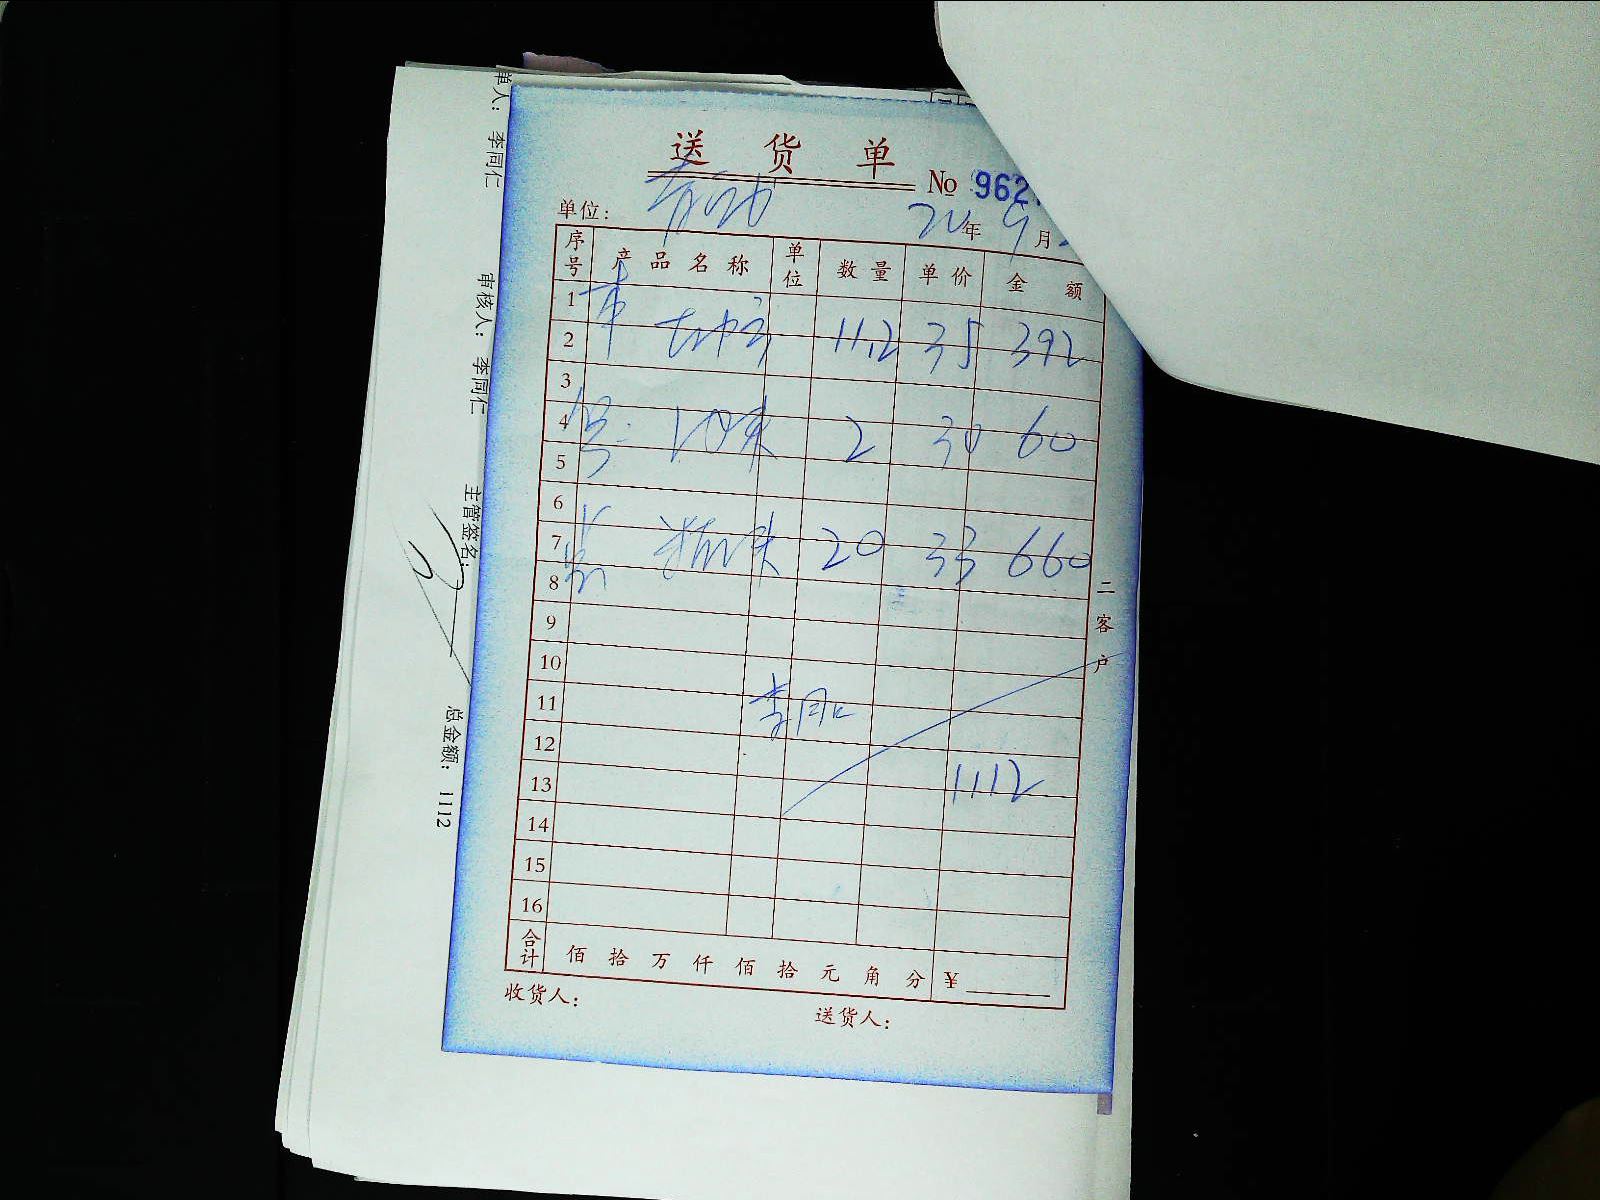 送货单
No 962
单位：
20年 9月
序号 产品名称 单位 数量 单价 金额
1
2 11.2 35 392
3
4 2 30 60
5
6
7 20 33 660
8
9
10
11
12
13 1112
14
15
16
合计 佰 拾 万 仟 佰 拾 元 角 分 ¥
收货人： 送货人：
二客户
单人： 李同仁 审核人： 李同仁 主管签名： 总金额： 1112